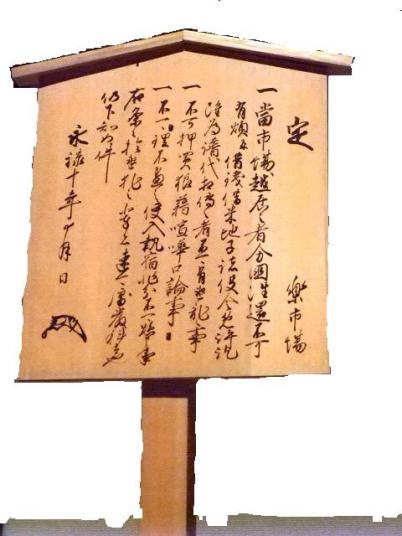 定
樂市場
一當市場越居之者分國往還不可
有煩并借錢借米地子諸役令免許訖
雖為譜代相傳之者不可有違乱事
一不可押買狼藉喧嘩口論事
一不可理不盡之使入執宿非分事
右条々於違犯之輩者速可處嚴科者也
仍下知如件
永禄十年十月日